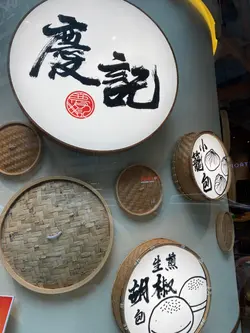 慶記
小籠包
生煎
胡椒包